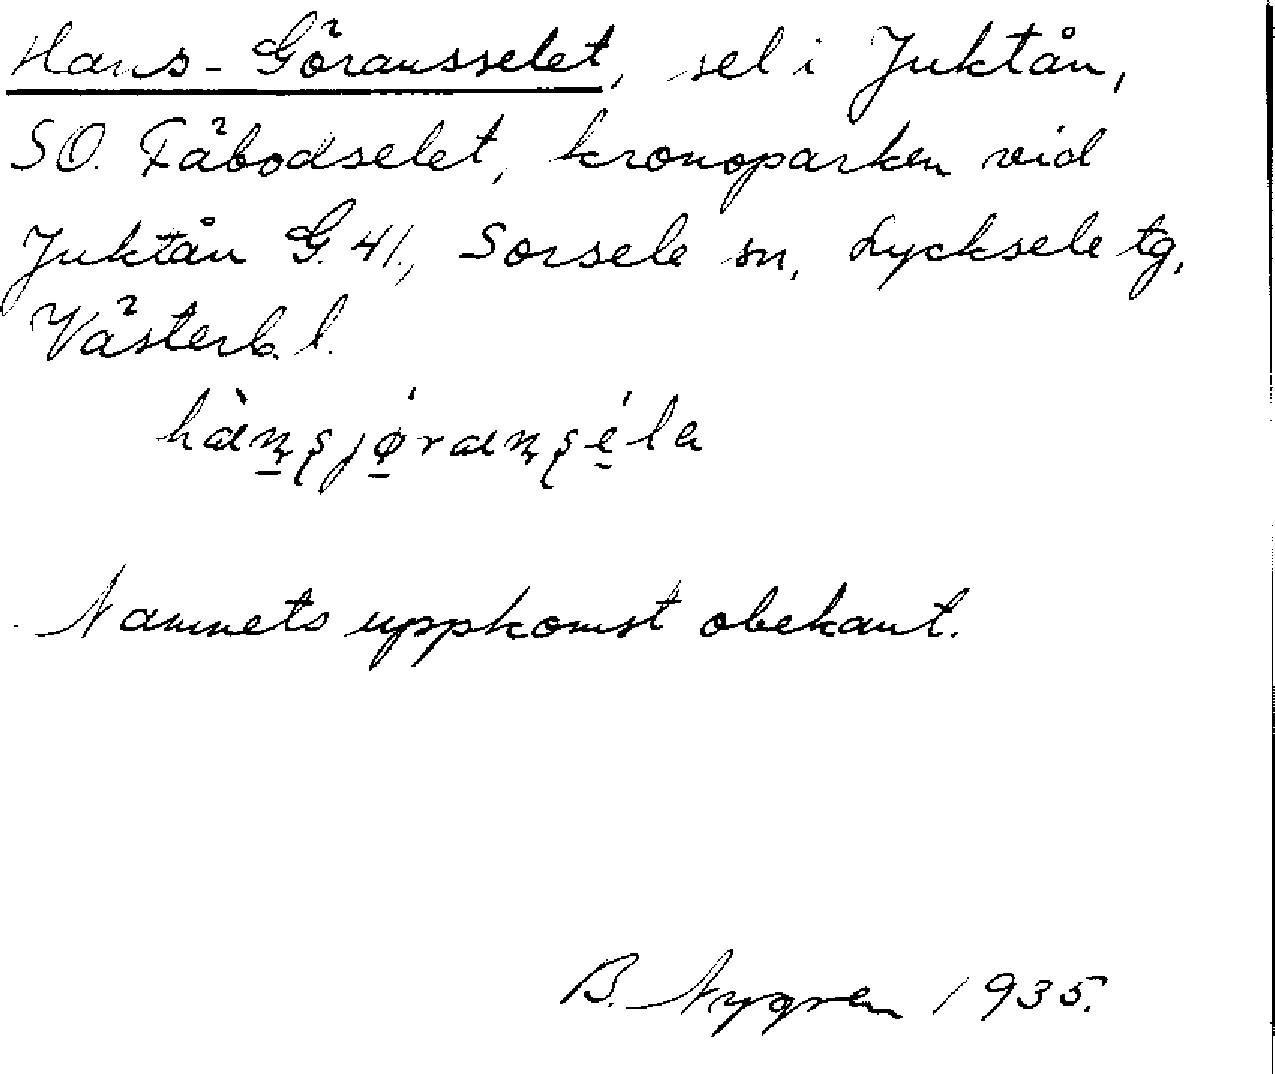 Hans-Göransselet, sel i Juktån,
SO. Fäbodselet, kronoparken vid
Juktån G. 41., Sorsele sn, Lycksele tg,
Västerb. l.
Namnets uppkomst obekant.
B. Nygren 1935.